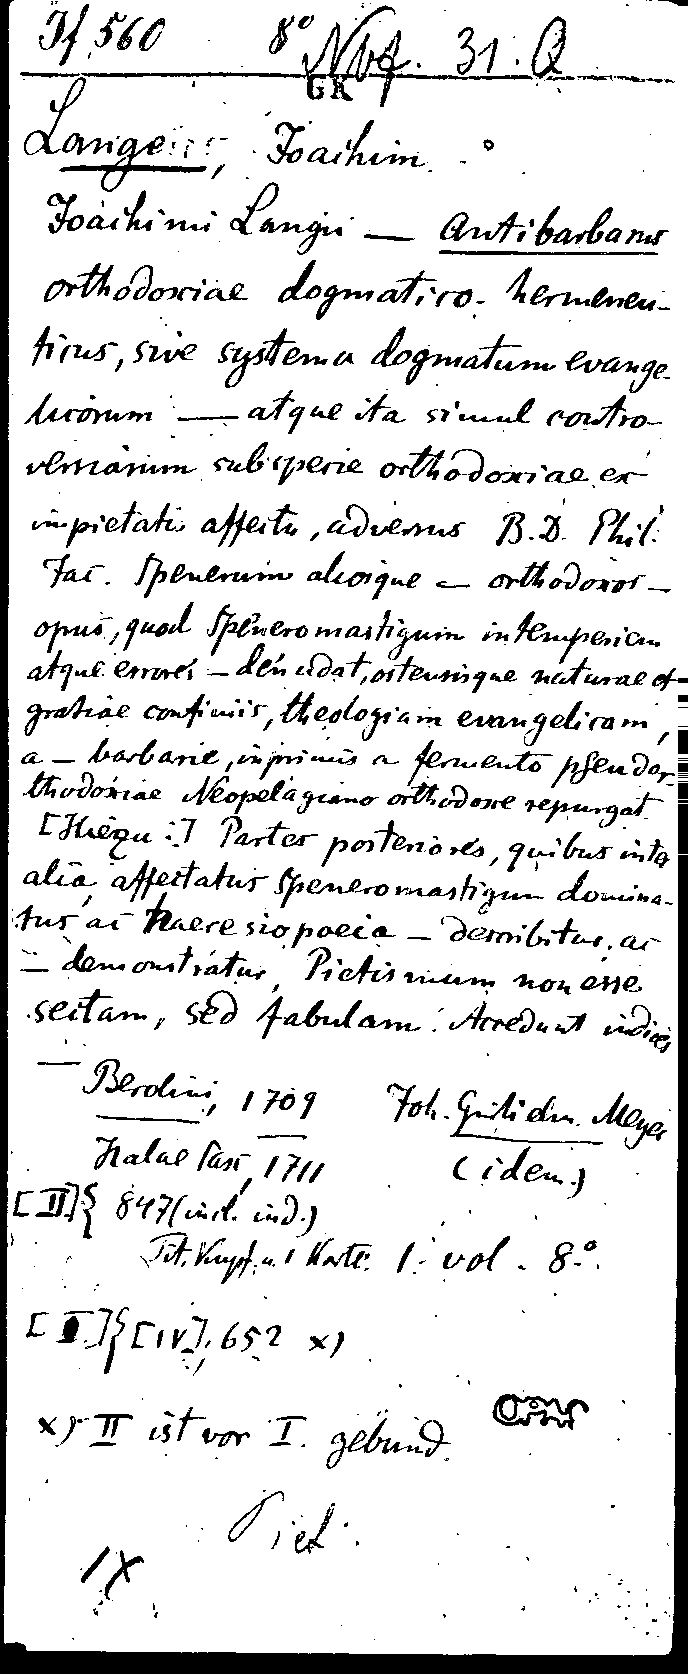 If 560 8° Nbf. 31. Q
GK
Lange, Joachim
Joachimi Langii — Antibarbarus
orthodoxiae dogmatico-hermeneu-
ticus, sive systema dogmatum evange-
licorum — atque ita simul contro-
versiarum sub specie orthodoxiae ex
impietatis affectu, adversus B. D. Phil.
Jac. Spenerum aliosque — orthodoxos —
opus, quod Speneromastigum intemperiem
atque errores — denudat, ostensisque naturae et
gratiae confiniis, theologiam evangelicam,
a — barbarie, inprimis a fermento pseudor-
thodoxiae Neopelagiano orthodoxe repurgat
[Hiezu:] Partes posteriores, quibus inter
alia, affectatus Speneromastigum domina-
tus ac haeresiopoeia — describitur, ac
— demonstratur, Pietismum non esse
sectam, sed fabulam. Accedunt indices
—
Berolini, 1709 Joh. Guilielm. Meyer
Halae Sax, 1711 (idem.)
[II]{ 847 (incl. ind.)
Tit. Kupf. u. 1 Karte. 1. vol. 8°.
[I]{[IV], 652 x)
x) II ist vor I. gebund.
Piet.
1X